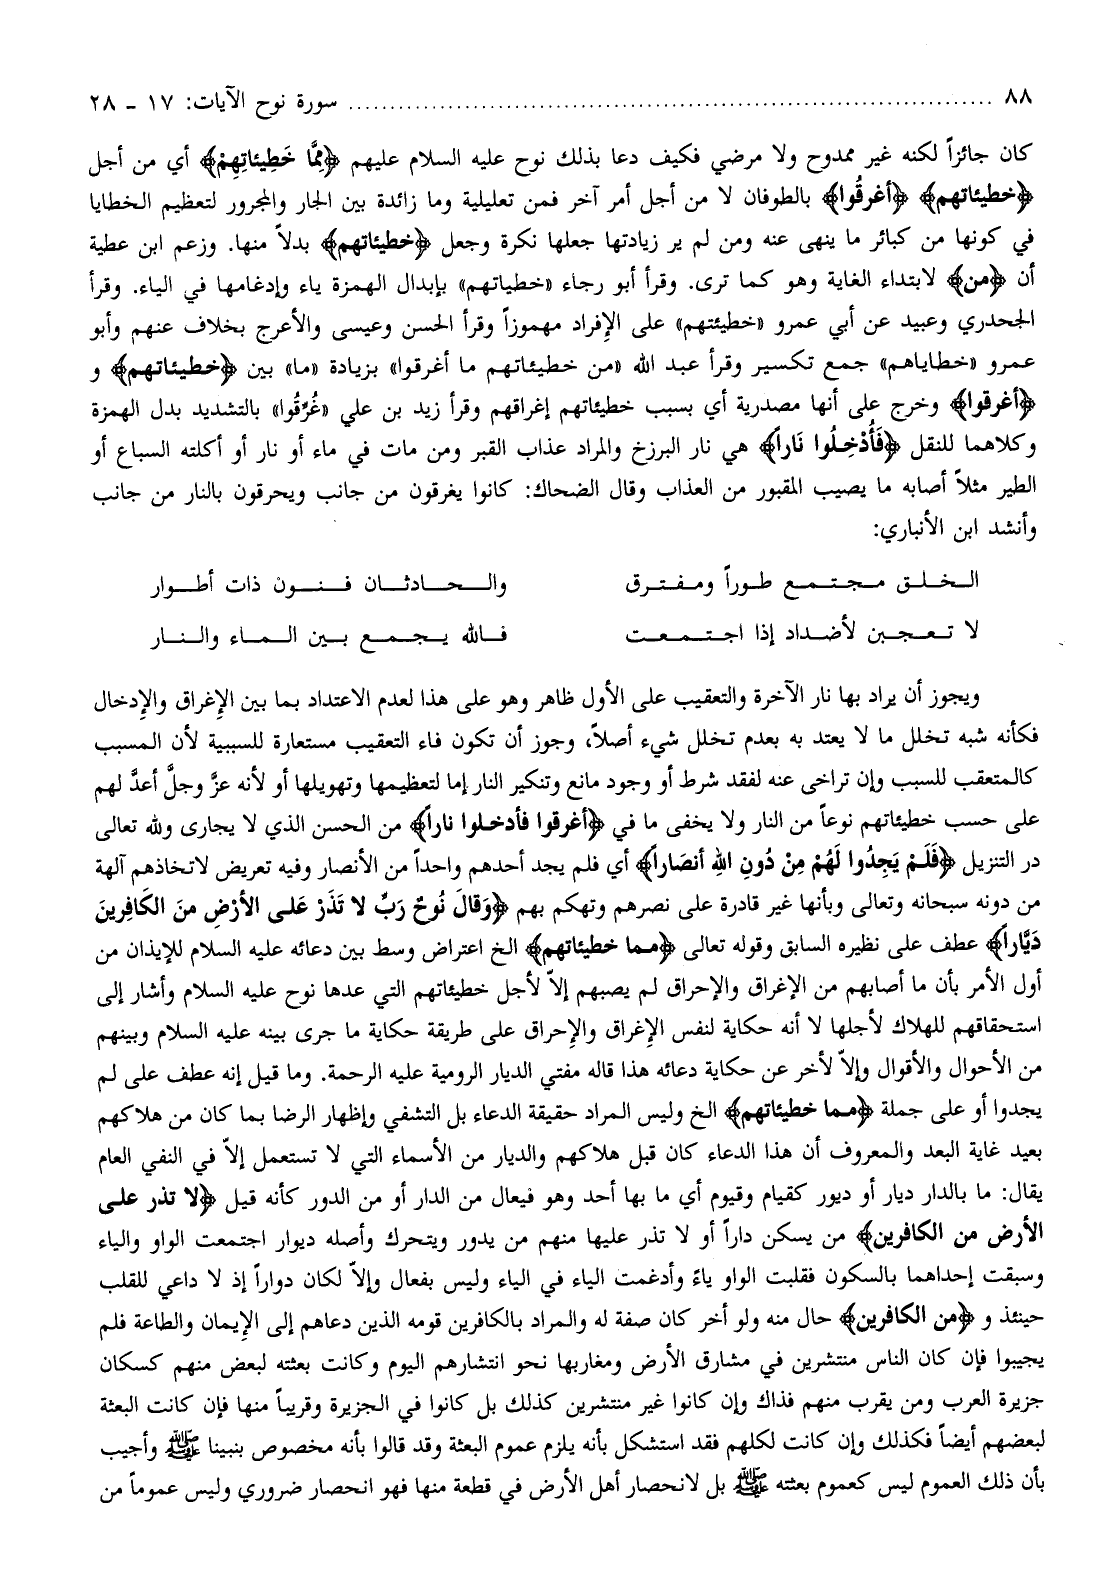 ٨٨ ........................................................................ سورة نوح الآيات: ١٧ - ٢٨
كان جائزاً لكنه غير ممدوح ولا مرضي فكيف دعا بذلك نوح عليه السلام عليهم ﴿مِمَّا خَطِيئاتِهِمْ﴾ أي من أجل
﴿خطيئاتهم﴾ ﴿أغرقُوا﴾ بالطوفان لا من أجل أمر آخر فمن تعليلية وما زائدة بين الجار والمجرور لتعظيم الخطايا
في كونها من كبائر ما ينهى عنه ومن لم ير زيادتها جعلها نكرة وجعل ﴿خطيئاتهم﴾ بدلاً منها. وزعم ابن عطية
أن ﴿من﴾ لابتداء الغاية وهو كما ترى. وقرأ أبو رجاء «خطياتهم» بإبدال الهمزة ياء وإدغامها في الياء. وقرأ
الجحدري وعبيد عن أبي عمرو «خطيئتهم» على الإفراد مهموزاً وقرأ الحسن وعيسى والأعرج بخلاف عنهم وأبو
عمرو «خطاياهم» جمع تكسير وقرأ عبد الله «من خطيئاتهم ما أغرقوا» بزيادة «ما» بين ﴿خطيئاتهم﴾ و
﴿أغرقوا﴾ وخرج على أنها مصدرية أي بسبب خطيئاتهم إغراقهم وقرأ زيد بن علي «غُرِّقُوا» بالتشديد بدل الهمزة
وكلاهما للنقل ﴿فَأُدْخِلُوا نَاراً﴾ هي نار البرزخ والمراد عذاب القبر ومن مات في ماء أو نار أو أكلته السباع أو
الطير مثلاً أصابه ما يصيب المقبور من العذاب وقال الضحاك: كانوا يغرقون من جانب ويحرقون بالنار من جانب
وأنشد ابن الأنباري:
الخلق مجتمع طوراً ومفترق والحادثان فنون ذات أطوار
لا تعجبن لأضداد إذا اجتمعت فالله يجمع بين الماء والنار
ويجوز أن يراد بها نار الآخرة والتعقيب على الأول ظاهر وهو على هذا لعدم الاعتداد بما بين الإغراق والإدخال
فكأنه شبه تخلل ما لا يعتد به بعدم تخلل شيء أصلاً، وجوز أن تكون فاء التعقيب مستعارة للسببية لأن المسبب
كالمتعقب للسبب وإن تراخى عنه لفقد شرط أو وجود مانع وتنكير النار إما لتعظيمها وتهويلها أو لأنه عزَّ وجلَّ أعدَّ لهم
على حسب خطيئاتهم نوعاً من النار ولا يخفى ما في ﴿أغرقوا فأدخلوا ناراً﴾ من الحسن الذي لا يجارى ولله تعالى
در التنزيل ﴿فَلَمْ يَجِدُوا لَهُمْ مِنْ دُونِ اللهِ أنصَاراً﴾ أي فلم يجد أحدهم واحداً من الأنصار وفيه تعريض لاتخاذهم آلهة
من دونه سبحانه وتعالى وبأنها غير قادرة على نصرهم وتهكم بهم ﴿وَقَالَ نُوحٌ رَبِّ لا تَذَرْ عَلى الأرْضِ منَ الكَافِرينَ
دَيَّاراً﴾ عطف على نظيره السابق وقوله تعالى ﴿مما خطيئاتهم﴾ الخ اعتراض وسط بين دعائه عليه السلام للإيذان من
أول الأمر بأن ما أصابهم من الإغراق والإحراق لم يصبهم إلاّ لأجل خطيئاتهم التي عدها نوح عليه السلام وأشار إلى
استحقاقهم للهلاك لأجلها لا أنه حكاية لنفس الإغراق والإحراق على طريقة حكاية ما جرى بينه عليه السلام وبينهم
من الأحوال والأقوال وإلاّ لأخر عن حكاية دعائه هذا قاله مفتي الديار الرومية عليه الرحمة. وما قيل إنه عطف على لم
يجدوا أو على جملة ﴿مما خطيئاتهم﴾ الخ وليس المراد حقيقة الدعاء بل التشفي وإظهار الرضا بما كان من هلاكهم
بعيد غاية البعد والمعروف أن هذا الدعاء كان قبل هلاكهم والديار من الأسماء التي لا تستعمل إلاّ في النفي العام
يقال: ما بالدار ديار أو ديور كقيام وقيوم أي ما بها أحد وهو فيعال من الدار أو من الدور كأنه قيل ﴿لا تذر على
الأرض من الكافرين﴾ من يسكن داراً أو لا تذر عليها منهم من يدور ويتحرك وأصله ديوار اجتمعت الواو والياء
وسبقت إحداهما بالسكون فقلبت الواو ياءً وأدغمت الياء في الياء وليس بفعال وإلاّ لكان دواراً إذ لا داعي للقلب
حينئذ و ﴿من الكافرين﴾ حال منه ولو أخر كان صفة له والمراد بالكافرين قومه الذين دعاهم إلى الإيمان والطاعة فلم
يجيبوا فإن كان الناس منتشرين في مشارق الأرض ومغاربها نحو انتشارهم اليوم وكانت بعثته لبعض منهم كسكان
جزيرة العرب ومن يقرب منهم فذاك وإن كانوا غير منتشرين كذلك بل كانوا في الجزيرة وقريباً منها فإن كانت البعثة
لبعضهم أيضاً فكذلك وإن كانت لكلهم فقد استشكل بأنه يلزم عموم البعثة وقد قالوا بأنه مخصوص بنبينا ﷺ وأجيب
بأن ذلك العموم ليس كعموم بعثته ﷺ بل لانحصار أهل الأرض في قطعة منها فهو انحصار ضروري وليس عموماً من